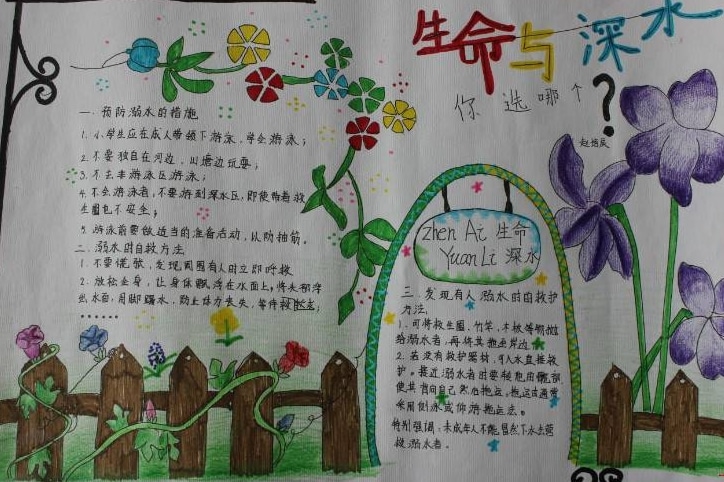 生命与深水
你选哪个?
一、预防溺水的措施
1. 小学生应在成人带领下游泳，学会游泳；
2. 不要独自在河边、山塘边玩耍；
3. 不去非游泳区游泳；
4. 不会游泳者，不要游到深水区，即使带着救
生圈也不安全；
5. 游泳前要做适当的准备活动，以防抽筋。
二、溺水时的自救方法
1. 不要慌张，发现周围有人时立即呼救
2. 放松全身，让身体飘浮在水面上，将头部浮
出水面，用脚踢水，防止体力丧失，等待救援；
……
zhen Ai 生命
Yuan Li 深水
三、发现有人溺水时的救护
方法
1. 可将救生圈、竹竿、木板等物抛
给溺水者，再将其拖至岸边；
2. 若没有救护器材，可入水直接救
护。接近溺水者时要转动他的髋部，
使其背向自己然后拖运。拖运时通常
采用侧泳或仰泳拖运法。
特别强调：未成年人不能冒然下水去营
救溺水者。